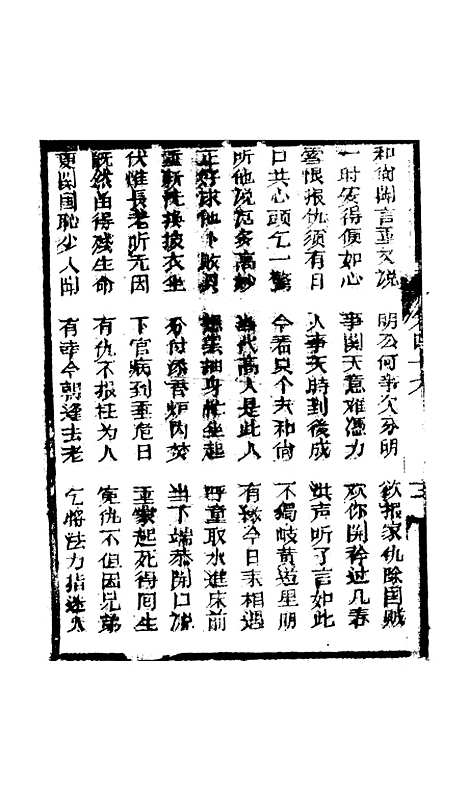 和尚開言重又说 明公何事欠分明 欲报家仇除国贼
一时安得便如心 事関天意难凭力 劝你開舒过几春
雪恨报仇须有日 人事天時到後成 洪声听了言如此
口共心頭乞一驚 今看只个大和尚 不獨岐黄道里朋
所他说范多高妙 当代高人是此人 有縁今日来相遇
正好求他 抽身忙坐起 呼童取水進床前
重新洗換披衣坐 分付添香炉内焚 当下端恭開口说
伏惟長老听元因 下官病到垂危日 蒙起死得囘生
既然留得残生命 有仇不报枉为人 冤仇不但因兄弟
更関国恥少人聞 有幸今朝逢去老 乞將法力指迷人